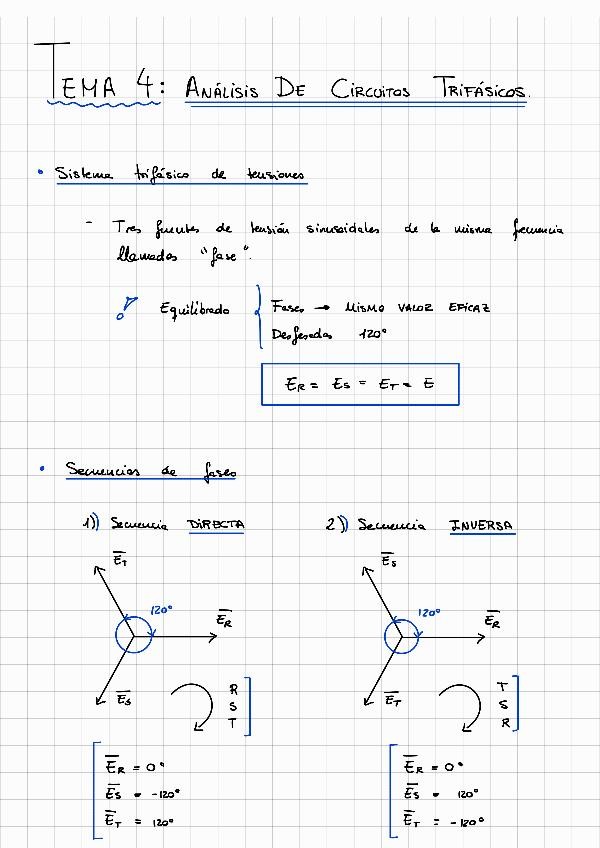 TEMA 4: ANÁLISIS DE CIRCUITOS TRIFÁSICOS.
• Sistema trifásico de tensiones
- Tres fuentes de tensión sinusoidales de la misma frecuencia
llamadas "fase".
Equilibrado { Fases → MISMO VALOR EFICAZ
Desfasadas 120°
ER = ES = ET = E
• Secuencias de fases
1) Secuencia DIRECTA
E̅T
120°
E̅R
E̅S
R
S
T
E̅R = 0°
E̅S = -120°
E̅T = 120°
2) Secuencia INVERSA
E̅S
120°
E̅R
E̅T
T
S
R
E̅R = 0°
E̅S = 120°
E̅T = -120°